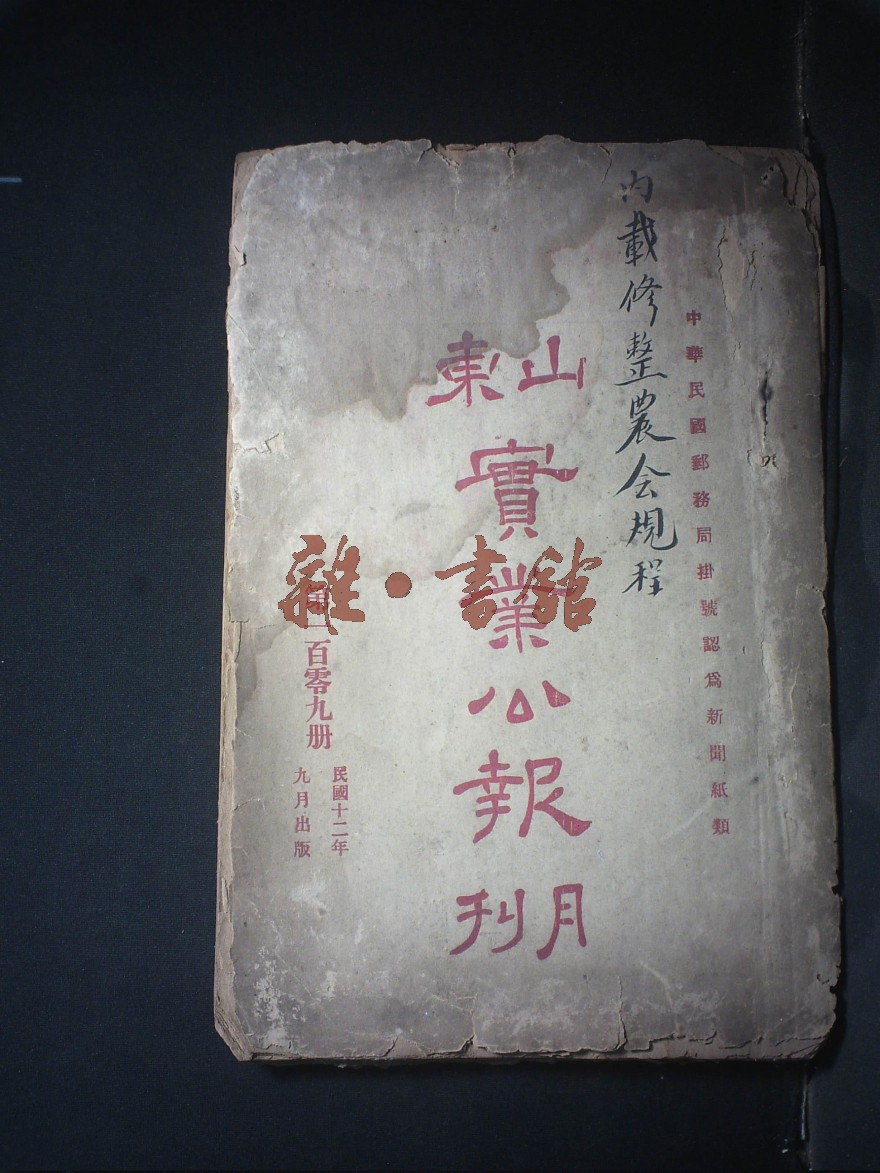 中華民國郵務局掛號認爲新聞紙類
内載修整農会規程
山東
實業公報
月刊
第一百零九册
民國十二年
九月出版
雜·書館